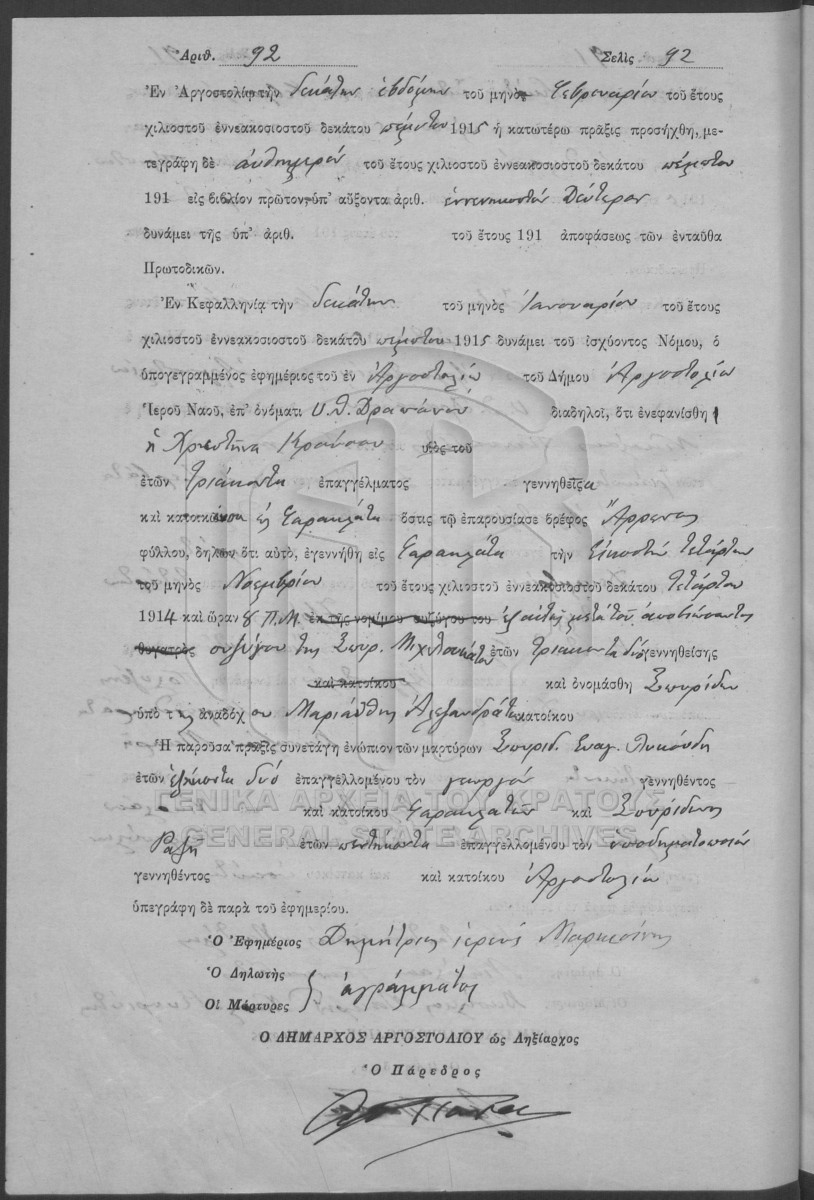 Ἀριθ. 92 Σελὶς 92
Ἐν Ἀργοστολίῳ τὴν δεκάτην ἑβδόμην τοῦ μηνὸς Φεβρουαρίου τοῦ ἔτους
χιλιοστοῦ ἐννεακοσιοστοῦ δεκάτου πέμπτου 1915 ἡ κατωτέρω πρᾶξις προσήχθη, με-
τεγράφη δὲ αὐθημερόν τοῦ ἔτους χιλιοστοῦ ἐννεακοσιοστοῦ δεκάτου πέμπτου
191 εἰς βιβλίον πρῶτον ὑπ' αὔξοντα ἀριθ. ἐννενηκοστόν Δεύτερον
δυνάμει τῆς ὑπ' ἀριθ. τοῦ ἔτους 191 ἀποφάσεως τῶν ἐνταῦθα
Πρωτοδικῶν.
Ἐν Κεφαλληνίᾳ τὴν δεκάτην τοῦ μηνὸς Ἰανουαρίου τοῦ ἔτους
χιλιοστοῦ ἐννεακοσιοστοῦ δεκάτου πέμπτου 1915 δυνάμει τοῦ ἰσχύοντος Νόμου, ὁ
ὑπογεγραμμένος ἐφημέριος τοῦ ἐν Ἀργοστολίῳ τοῦ Δήμου Ἀργοστολίου
Ἱεροῦ Ναοῦ, ἐπ' ὀνόματι Υ.Θ. Δραπάνου διαδηλοῖ, ὅτι ἐνεφανίσθη
ἡ Χριστίνα υἱὸς τοῦ
ἐτῶν τριάκοντα ἐπαγγέλματος γεννηθεῖσα
καὶ κατοικοῦσα εἰς Φαρακλάτα ὅστις τῷ ἐπαρουσίασε βρέφος Ἄρρενος
φύλλου, δηλῶν ὅτι αὐτό, ἐγεννήθη εἰς Φαρακλάτα τὴν Εἰκοστήν τετάρτην
τοῦ μηνὸς Νοεμβρίου τοῦ ἔτους χιλιοστοῦ ἐννεακοσιοστοῦ δεκάτου τετάρτου
1914 καὶ ὥραν 8 Π.Μ. ἐκ τῆς νομίμου συζύγου του ἐξ αὐτῆς μετὰ τοῦ ἀποβιώσαντος
θυγατρὸς συζύγου της Σπυρ. ἐτῶν τριάκοντα δύο γεννηθείσης
καὶ κατοίκου καὶ ὀνομάσθη Σπυρίδων
ὑπὸ της ἀναδόχου Μαριάνθης Ἀλεξανδράτου κατοίκου
Ἡ παροῦσα πρᾶξις συνετάγη ἐνώπιον τῶν μαρτύρων Σπυρίδ. Εὐαγ. Λυκούδη
ἐτῶν ἑξήκοντα δύο ἐπαγγελλομένου τὸν γεωργόν γεννηθέντος
καὶ κατοίκου Φαρακλάτων καὶ Σπυρίδωνος
ἐτῶν πεντήκοντα ἐπαγγελλομένου τὸν ὑποδηματοποιόν
γεννηθέντος καὶ κατοίκου Ἀργοστολίου
ὑπεγράφη δὲ παρὰ τοῦ ἐφημερίου.
Ὁ Ἐφημέριος Δημήτριος ἱερεύς
Ὁ Δηλωτὴς
Οἱ Μάρτυρες } ἀγράμματοι
Ο ΔΗΜΑΡΧΟΣ ΑΡΓΟΣΤΟΛΙΟΥ ὡς Ληξίαρχος
Ὁ Πάρεδρος
ΓΕΝΙΚΑ ΑΡΧΕΙΑ ΤΟΥ ΚΡΑΤΟΥΣ
GENERAL STATE ARCHIVES